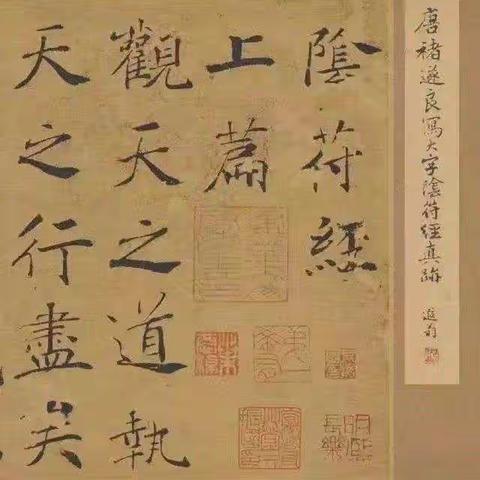 唐褚遂良寫大字陰符經真跡
陰苻經
上萹
觀天之道執
天之行盡矣